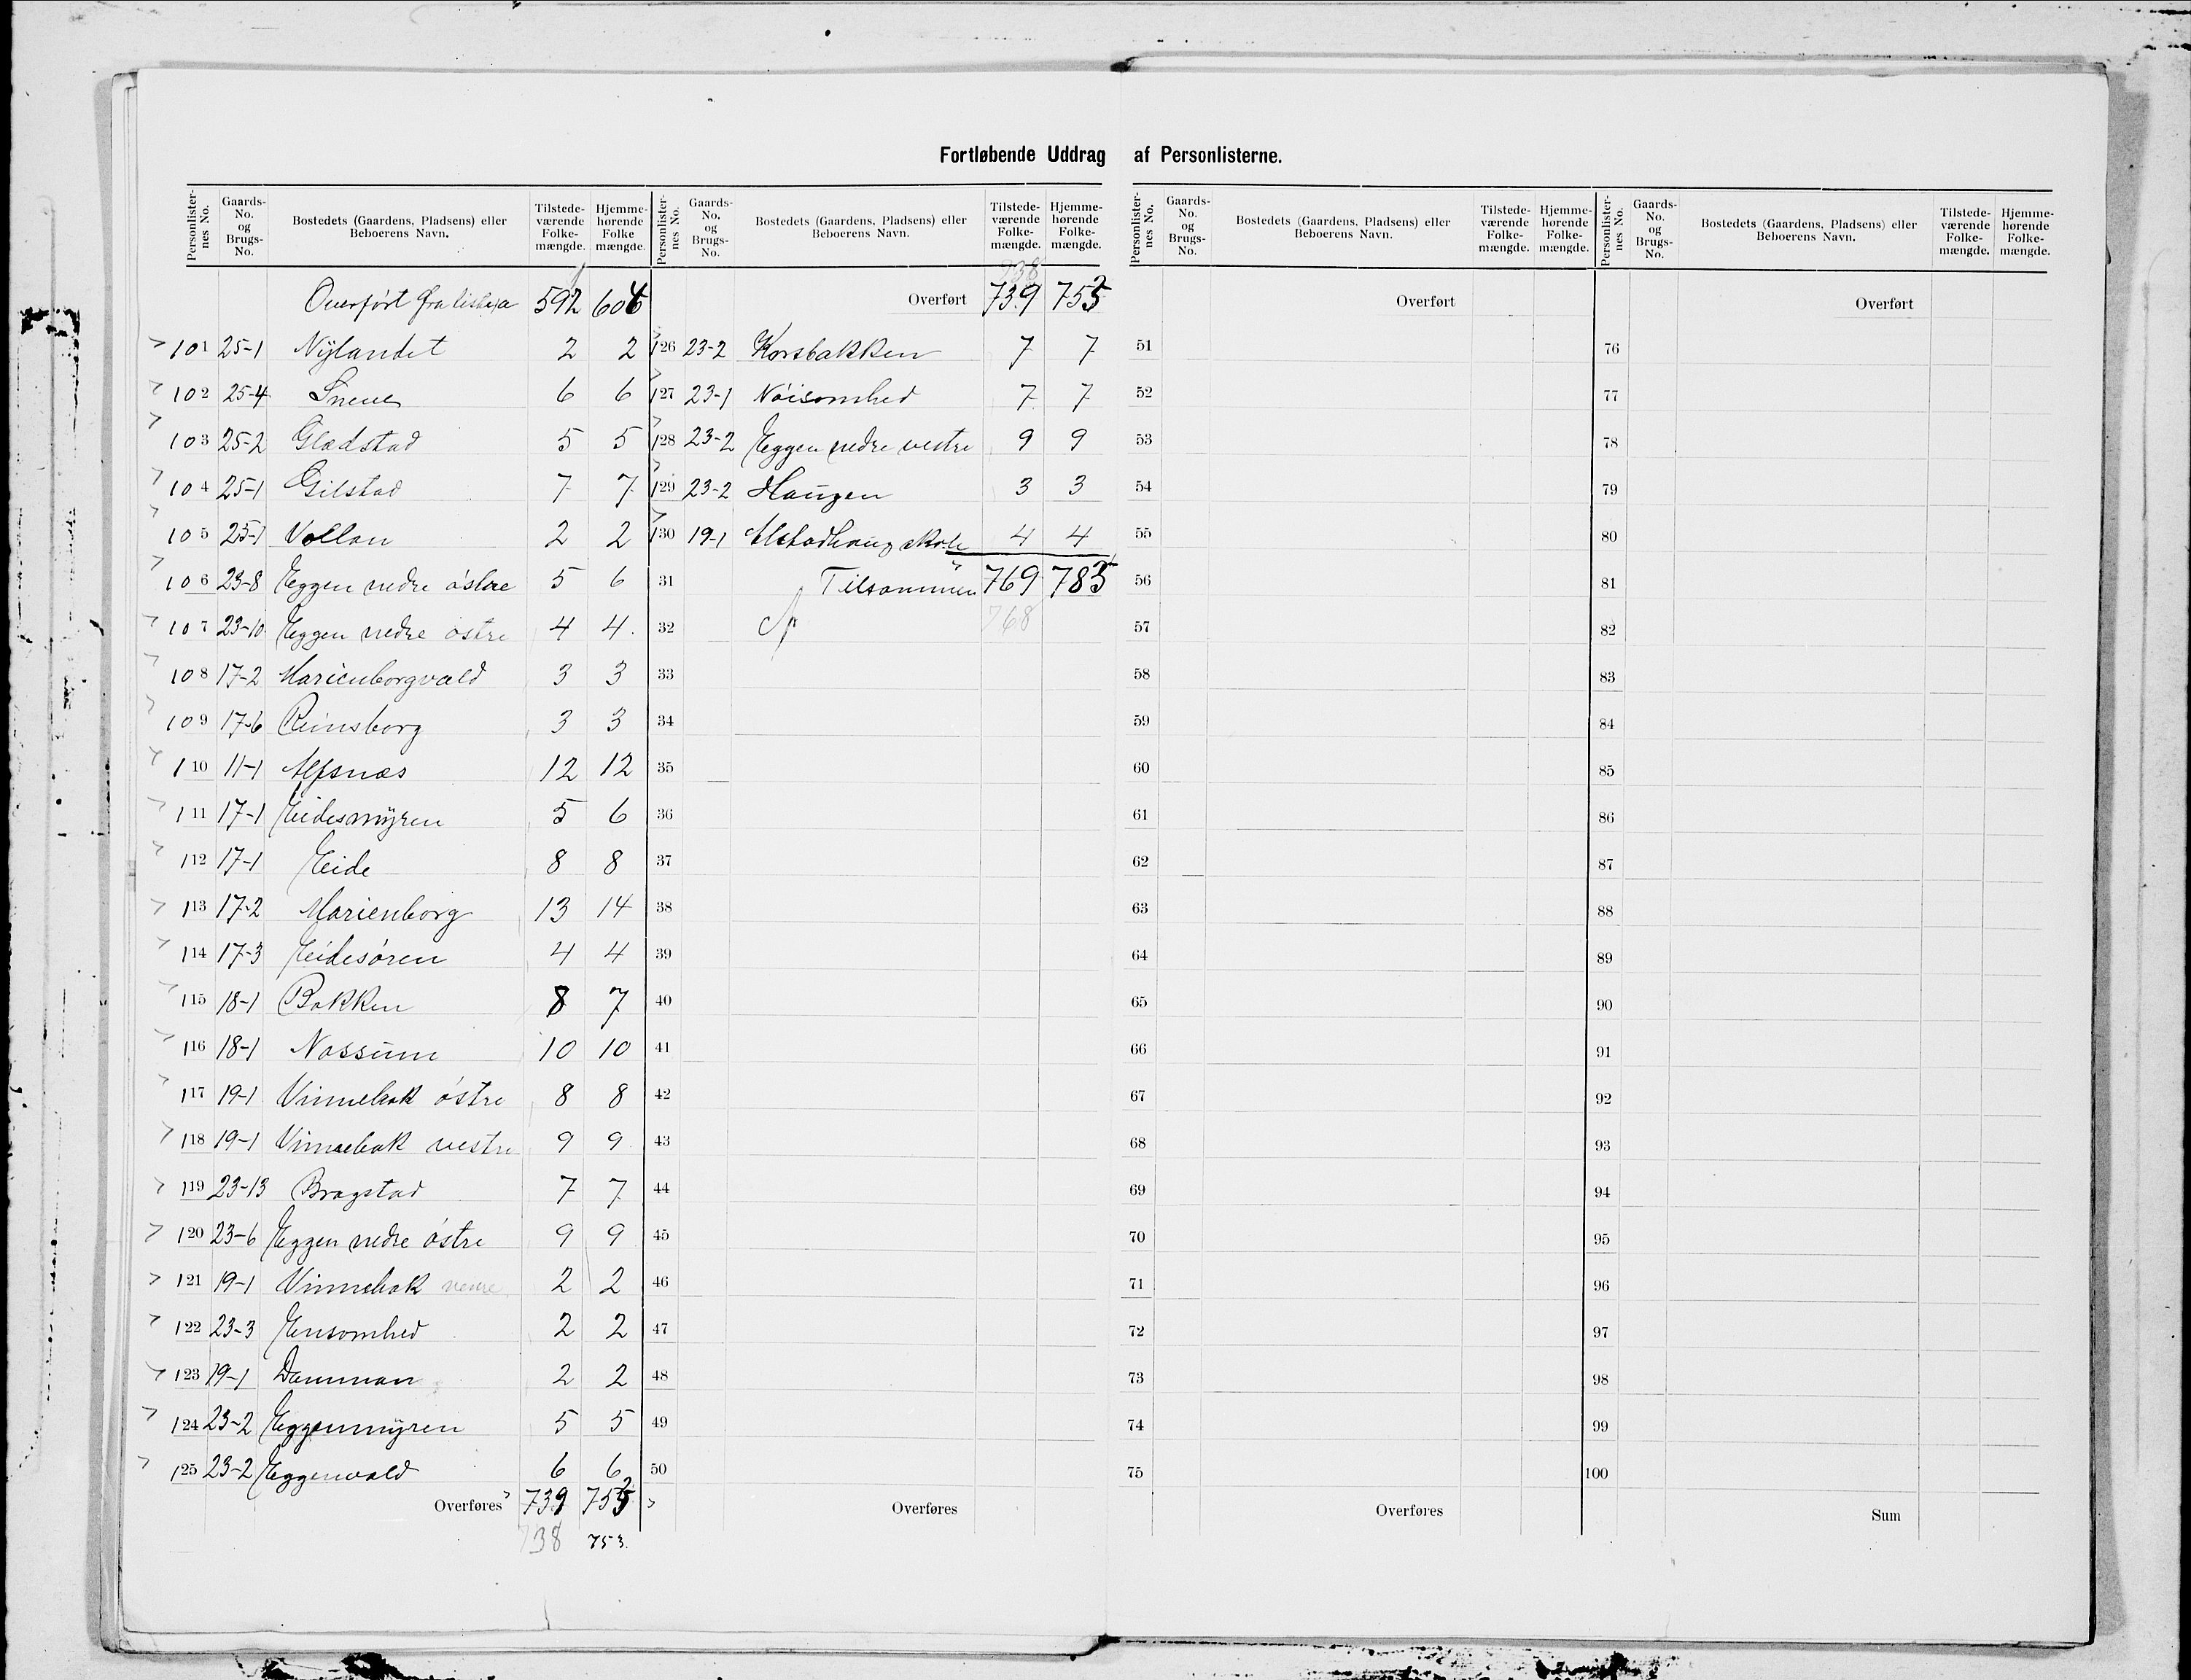 Fortløbende Uddrag af Personlisterne.
Personlister-nes No. Gaards-No. og Brugs-No. Bostedets (Gaardens, Pladsens) eller Beboerens Navn. Tilstede-værende Folke-mængde. Hjemme-hørende Folke mængde.
Overført fra liste 592 604
101 25-1 Nylandet 2 2
102 25-4 Sneve 6 6
103 25-2 Gladstad 5 5
104 25-1 Gilstad 7 7
105 25-1 Vollan 2 2
106 23-8 Eggen nedre østre 5 6
107 23-10 Eggen nedre østre 4 4
108 17-2 Marienborgvald 3 3
109 17-6 Reinsborg 3 3
110 11-1 Alfsnæs 12 12
111 17-1 Eidesmyren 5 6
112 17-1 Eide 8 8
113 17-2 Marienborg 13 14
114 17-3 Eidesøren 4 4
115 18-1 Bakken 8 7
116 18-1 Nossum 10 10
117 19-1 Vinnebak østre 8 8
118 19-1 Vinnebak vestre 9 9
119 23-13 Bragstad 7 7
120 23-6 Eggen nedre østre 9 9
121 19-1 Vinnebak 2 2
122 23-3 Ensomhed 2 2
123 19-1 Damman 2 2
124 23-2 Eggenmyren 5 5
125 23-2 Eggenvald 6 6
Overføres 739 753
738 753.
Personlister-nes No. Gaards-No. og Brugs-No. Bostedets (Gaardens, Pladsens) eller Beboerens Navn. Tilstede-værende Folke-mængde. Hjemme-hørende Folke-mængde.
738
Overført 739 753
126 23-2 Korsbakken 7 7
127 23-1 Nøisomhed 7 7
128 23-2 Eggen nedre vestre 9 9
129 23-2 Haugen 3 3
130 19-1 Alstadhaug skole 4 4
31 Tilsammen 769 783
32 768
33
34
35
36
37
38
39
40
41
42
43
44
45
46
47
48
49
50
Overføres
Personlister-nes No. Gaards-No. og Brugs-No. Bostedets (Gaardens, Pladsens) eller Beboerens Navn. Tilstede-værende Folke-mængde. Hjemme-hørende Folke-mængde.
Overført
51
52
53
54
55
56
57
58
59
60
61
62
63
64
65
66
67
68
69
70
71
72
73
74
75
Overføres
Personlister-nes No. Gaards-No. og Brugs-No. Bostedets (Gaardens, Pladsens) eller Beboerens Navn. Tilstede-værende Folke-mængde. Hjemme-hørende Folke-mængde.
Overført
76
77
78
79
80
81
82
83
84
85
86
87
88
89
90
91
92
93
94
95
96
97
98
99
100
Sum